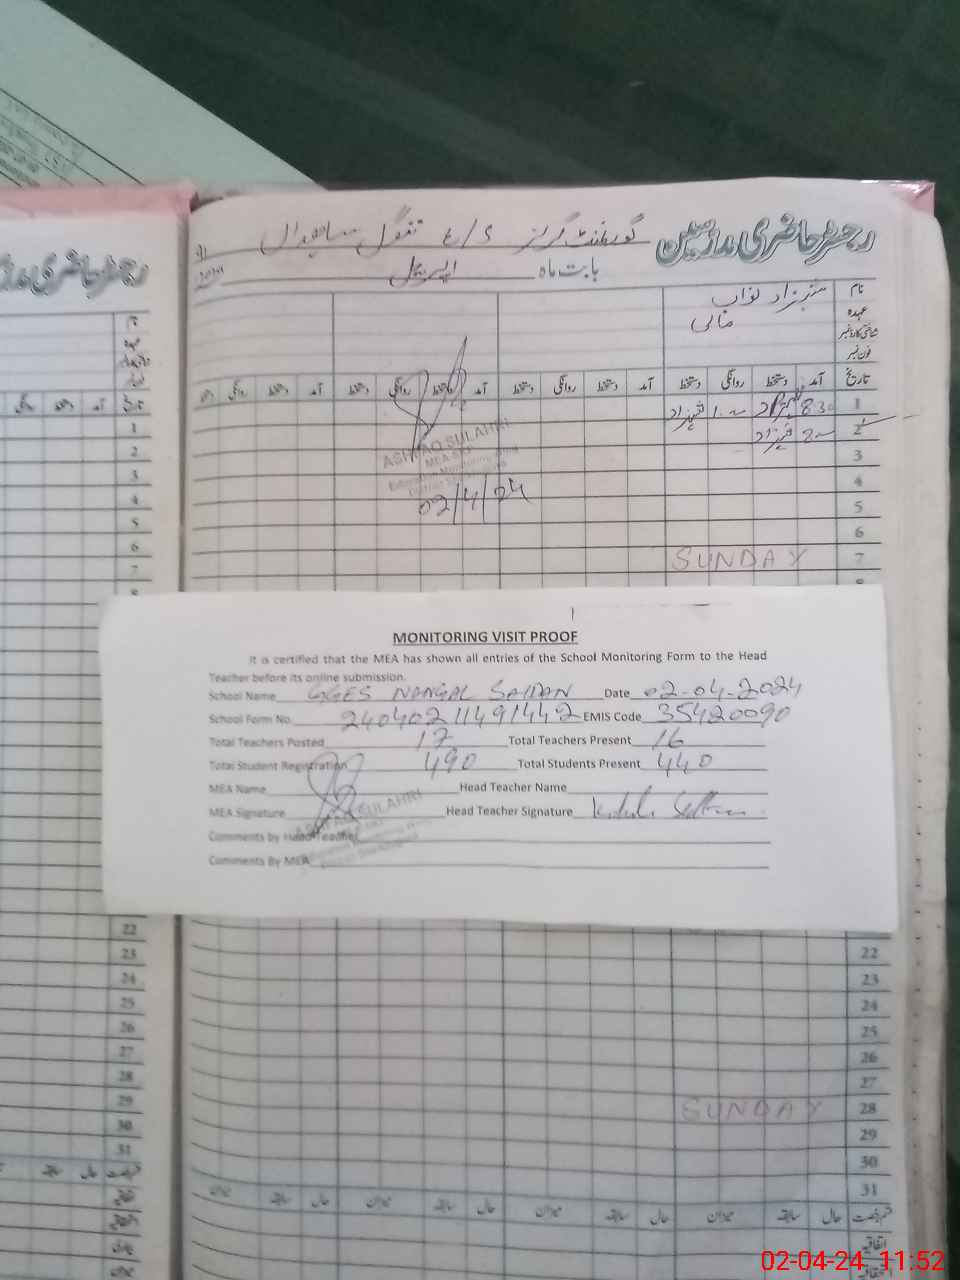 رجسٹر حاضری ملازمین گورنمنٹ گرلز E/S ننگل سایداں
بابت ماہ اپریل
نام
عہدہ مالی
شناختی کارڈ نمبر
فون نمبر
تاریخ آمد دستخط روانگی دستخط آمد دستخط روانگی دستخط آمد دستخط روانگی دستخط آمد دستخط روانگی دستخط
1 8.30
2
ASHFAQ SULAHRI
02/4/24
3
4
5
6
7 SUNDAY
MONITORING VISIT PROOF
It is certified that the MEA has shown all entries of the School Monitoring Form to the Head
Teacher before its online submission.
School Name GGES NANGAL SAIDAN Date 02-04-2024
School Form No. 24040211491442 EMIS Code 35420090
Total Teachers Posted 17 Total Teachers Present 16
Total Student Registration 490 Total Students Present 440
MEA Name Head Teacher Name
MEA Signature Head Teacher Signature
ASHFAQ SULAHRI
Comments by Head Teacher
Comments By MEA
22
23
24
25
26
27
28 SUNDAY
29
30
31
قسم رخصت حال سابقہ میزان حال سابقہ میزان حال سابقہ میزان حال سابقہ میزان
اتفاقیہ
رجسٹر حاضری ملازمین
نام
عہدہ
تاریخ آمد دستخط روانگی
1
2
3
4
5
6
7
22
23
24
25
26
27
28
29
30
31
02-04-24 11:52